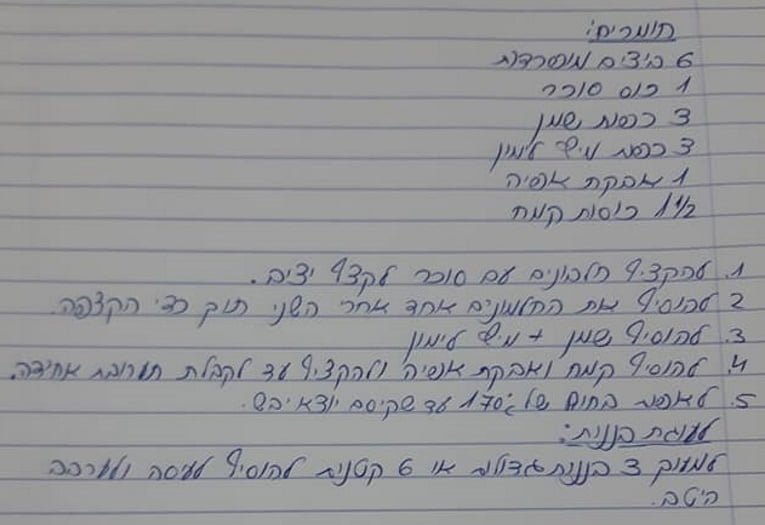 חומרים:
6 ביצים מופרדות
1 כוס סוכר
3 כפות שמן
3 כפות מיץ לימון
1 אבקת אפיה
1 1/2 כוסות קמח
1. להקציף חלבונים עם סוכר לקצף יציב.
2 להוסיף את החלמונים אחד אחרי השני תוך כדי הקצפה.
3. להוסיף שמן + מיץ לימון
4. להוסיף קמח ואבקת אפיה ולהקציף עד לקבלת תערובת אחידה.
5. לאפות בחום של 170°c עד שקיסם יוצא יבש.
לעוגת בננות:
למעוך 3 בננות גדולות או 6 קטנות להוסיף לעיסה ולערבב
היטב.